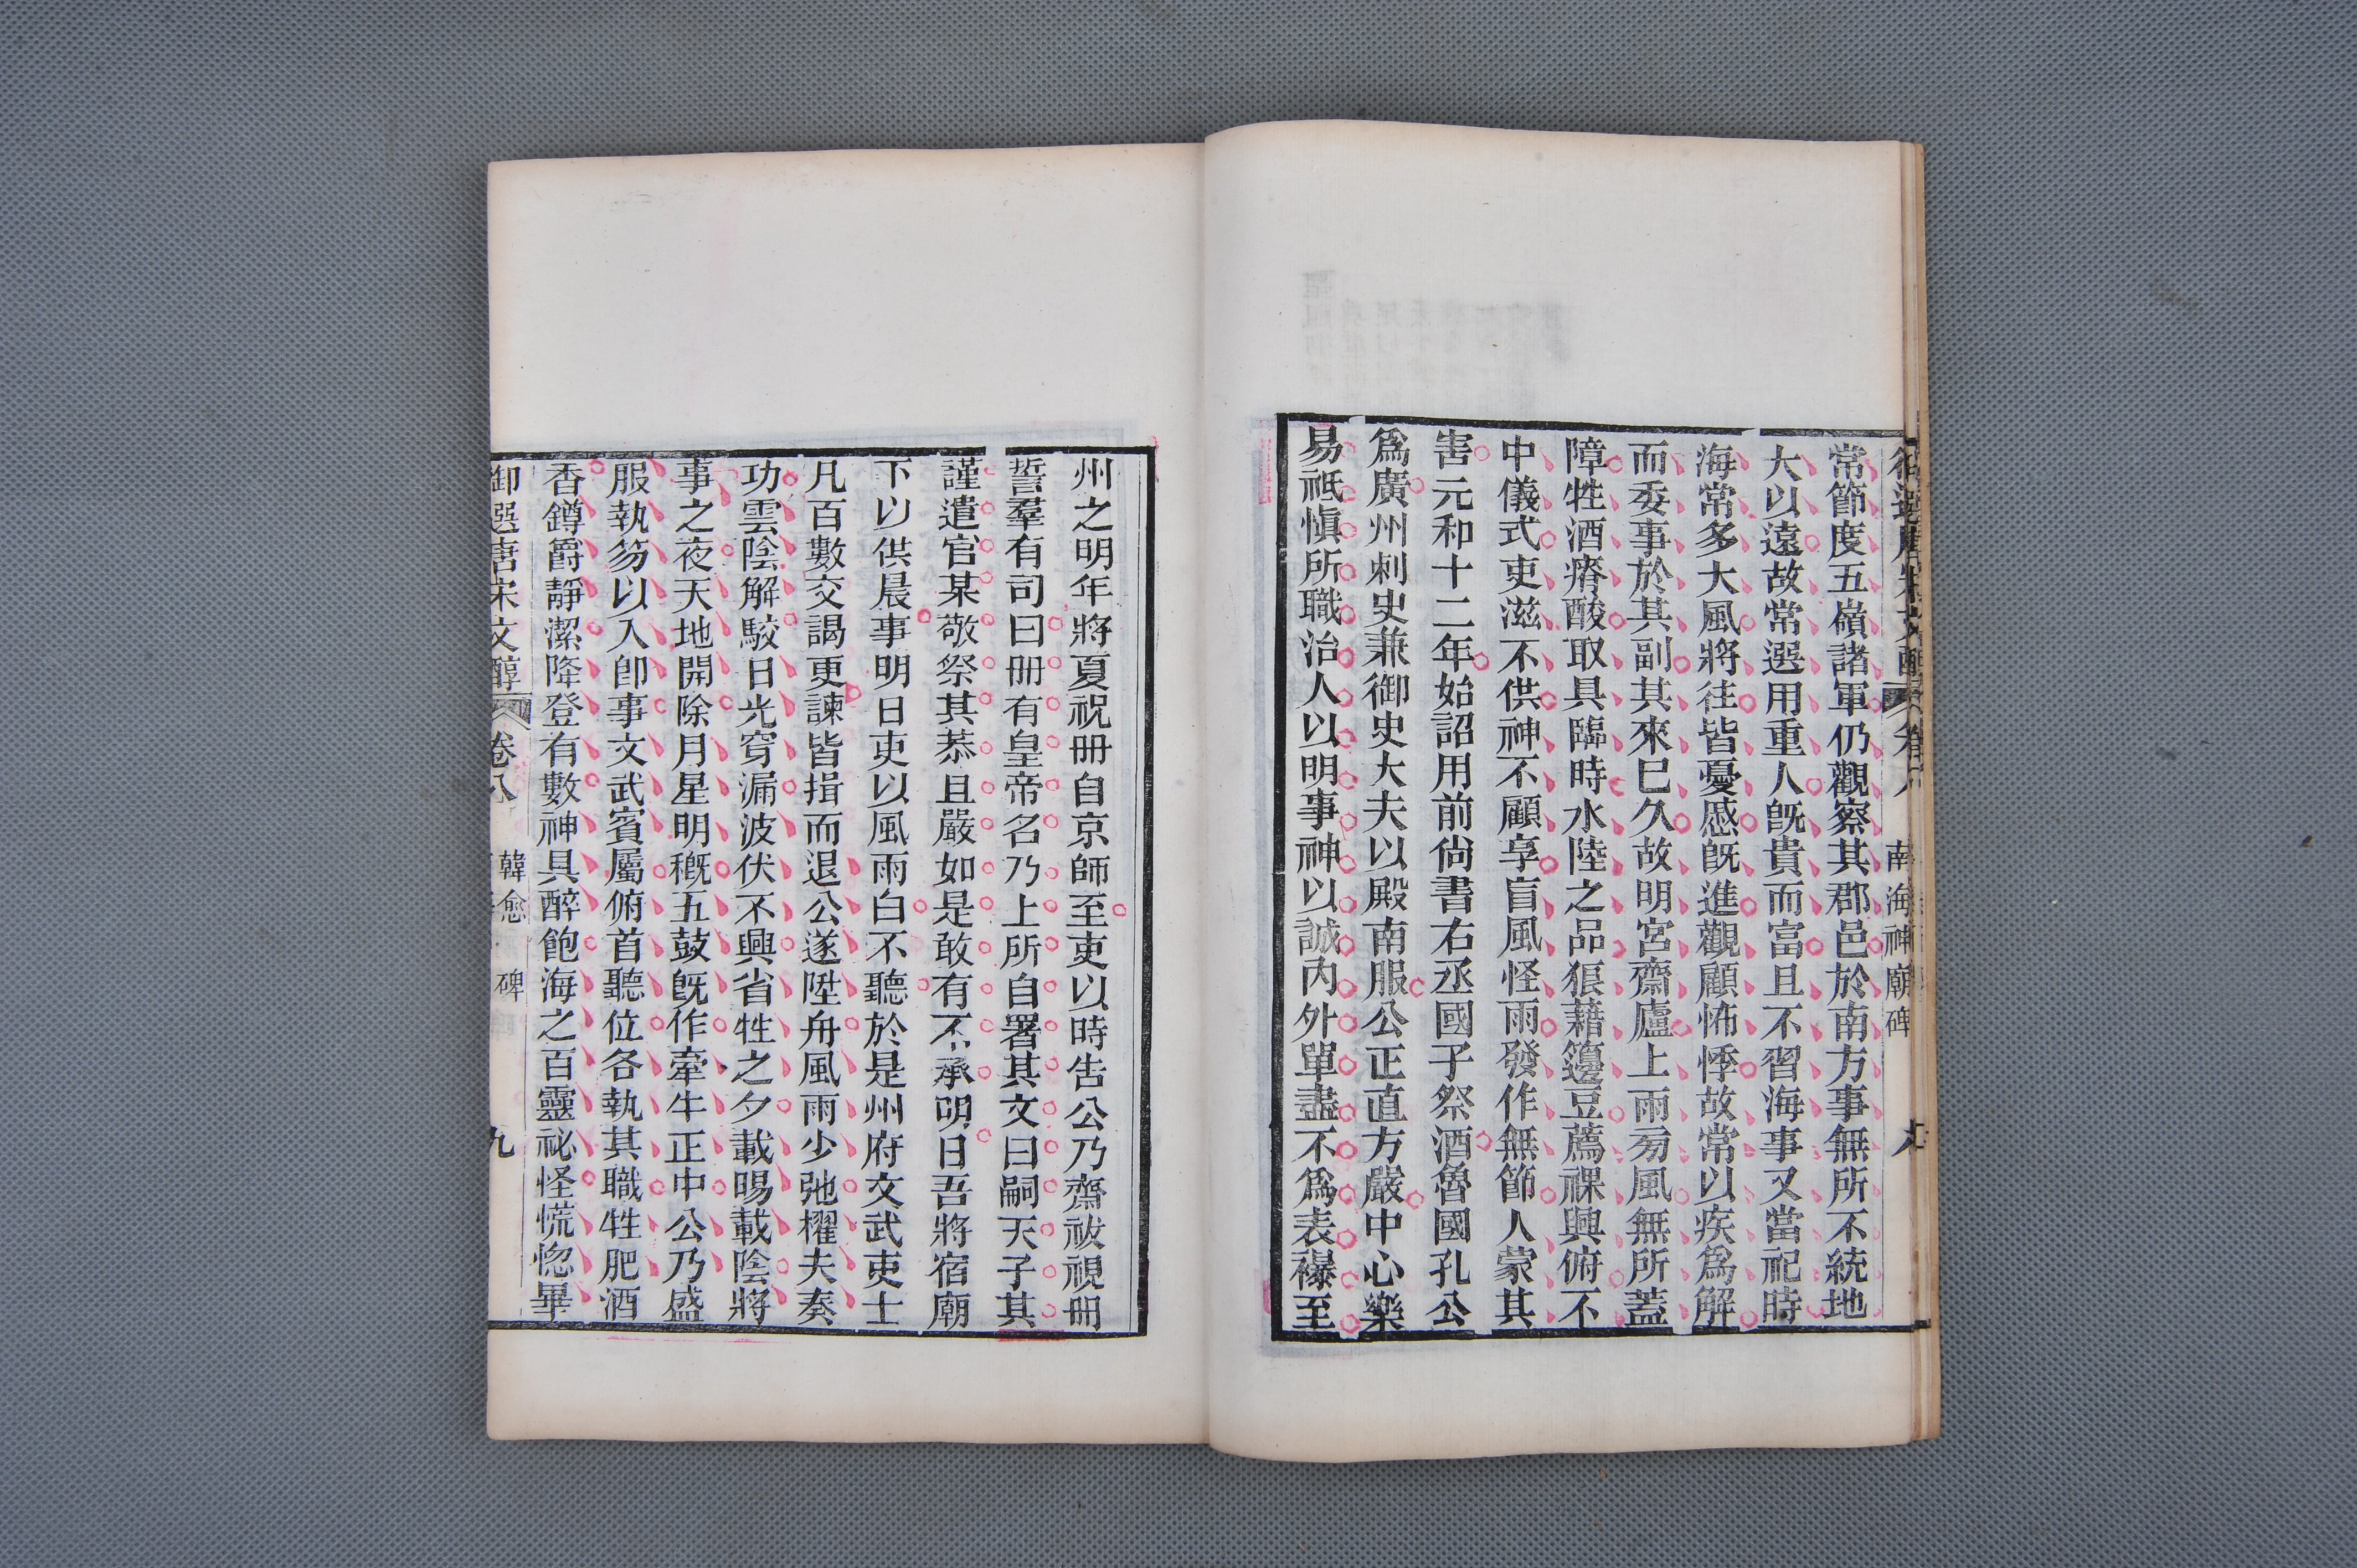 御選唐宋文醇 卷八 南海神廟碑
常節度五嶺諸軍仍觀察其郡邑於南方事無所不統地
大以遠故常選用重人旣貴而富且不習海事又當祀時
海常多大風將往皆憂慼旣進觀顧怖悸故常以疾爲解
而委事於其副其來已久故明宮齋廬上雨旁風無所蓋
障牲酒瘠酸取具臨時水陸之品狼藉籩豆薦祼興俯不
中儀式吏滋不供神不顧享盲風怪雨發作無節人蒙其
害元和十二年始詔用前尙書右丞國子祭酒魯國孔公
爲廣州刺史兼御史大夫以殿南服公正直方嚴中心樂
易祗愼所職治人以明事神以誠內外單盡不爲表襮至
州之明年將夏祝冊自京師至吏以時告公乃齋祓視冊
誓羣有司曰冊有皇帝名乃上所自署其文曰嗣天子某
謹遣官某敬祭其恭且嚴如是敢有不承明日吾將宿廟
下以供晨事明日吏以風雨白不聽於是州府文武吏士
凡百數交謁更諫皆揖而退公遂陞舟風雨少弛櫂夫奏
功雲陰解駁日光穿漏波伏不興省牲之夕載暘載陰將
事之夜天地開除月星明穊五鼓旣作牽牛正中公乃盛
服執笏以入卽事文武賓屬俯首聽位各執其職牲肥酒
香罇爵靜潔降登有數神具醉飽海之百靈祕怪慌惚畢
御選唐宋文醇 卷八 韓愈 碑 九